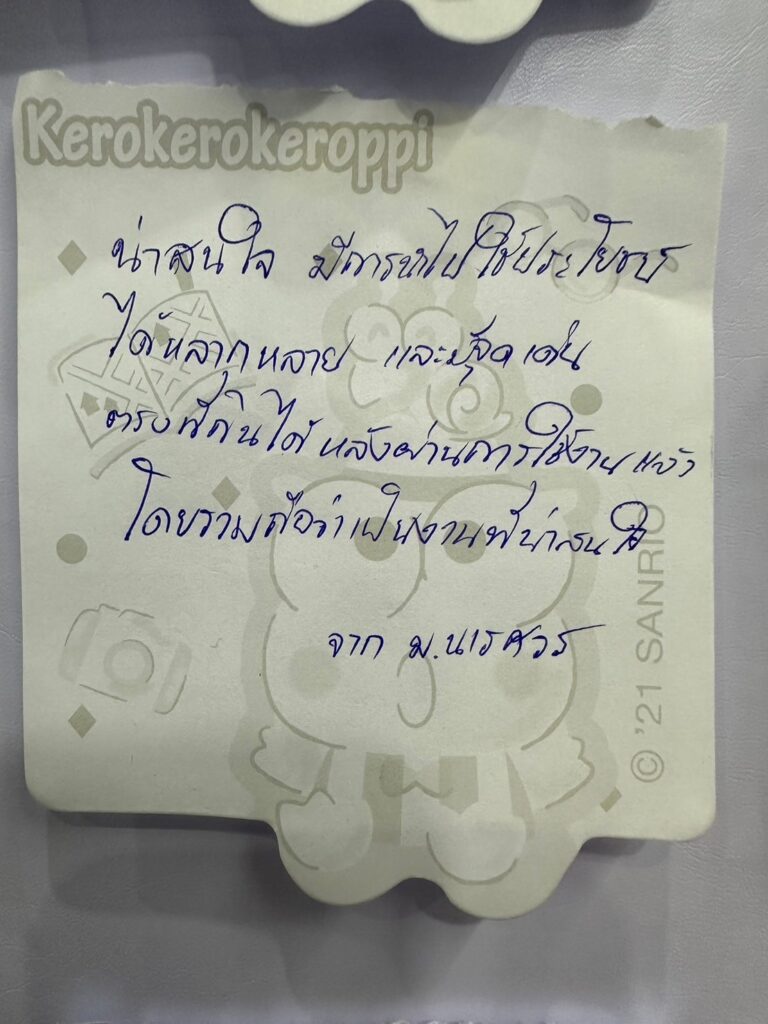 Kerokerokeroppi
น่าสนใจ มีการนำไปใช้ประโยชน์
ได้หลากหลาย และมีจุดเด่น
ตรงที่กินได้ หลังผ่านการใช้งานแล้ว
โดยรวมถือว่าเป็นงานที่น่าสนใจ
จาก ม.นเรศวร
© '21 SANRIO